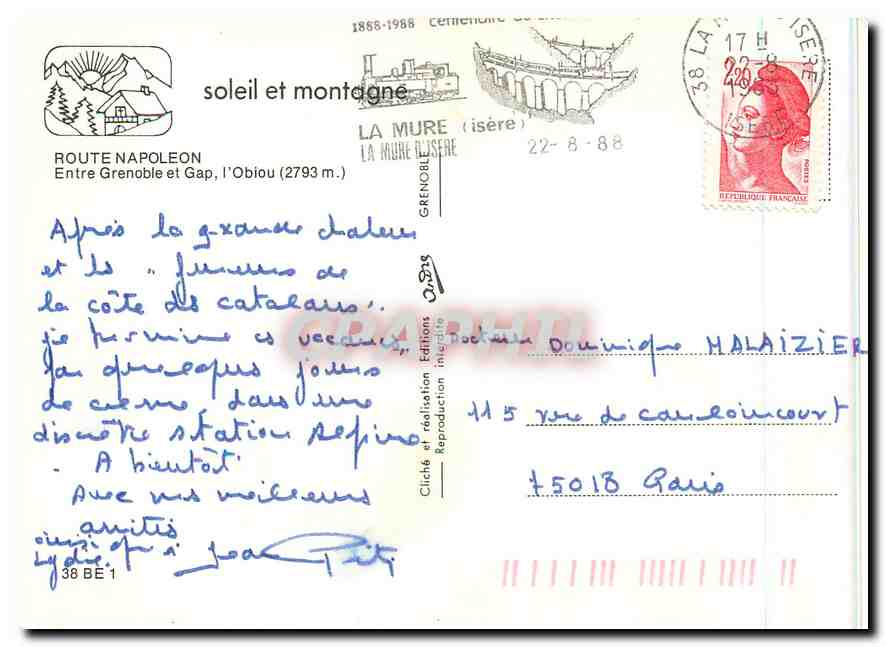 1888-1988 centenaire du
LA MURE (isère)
LA MURE D'ISERE
22-8-88
38 LA MURE D'ISERE
17 H
22-8
1988
ISERE
2,20
POSTES
REPUBLIQUE FRANÇAISE
soleil et montagne
ROUTE NAPOLEON
Entre Grenoble et Gap, l'Obiou (2793 m.)
Après la grande chaleur
et les " fureurs de
la côte des catalans".
je termine ces vacances,
par quelques jours
de calme, dans une
discrète station Alpine
. A bientôt
Avec nos meilleures
amitiés
ainsi que
Lydie. Jean
38 BE 1
GRENOBLE
André
Cliché et réalisation Editions
Reproduction interdite
CRAPHTL
Docteur Dominique MALAIZIER
115 rue de Caulaincourt
75018 Paris